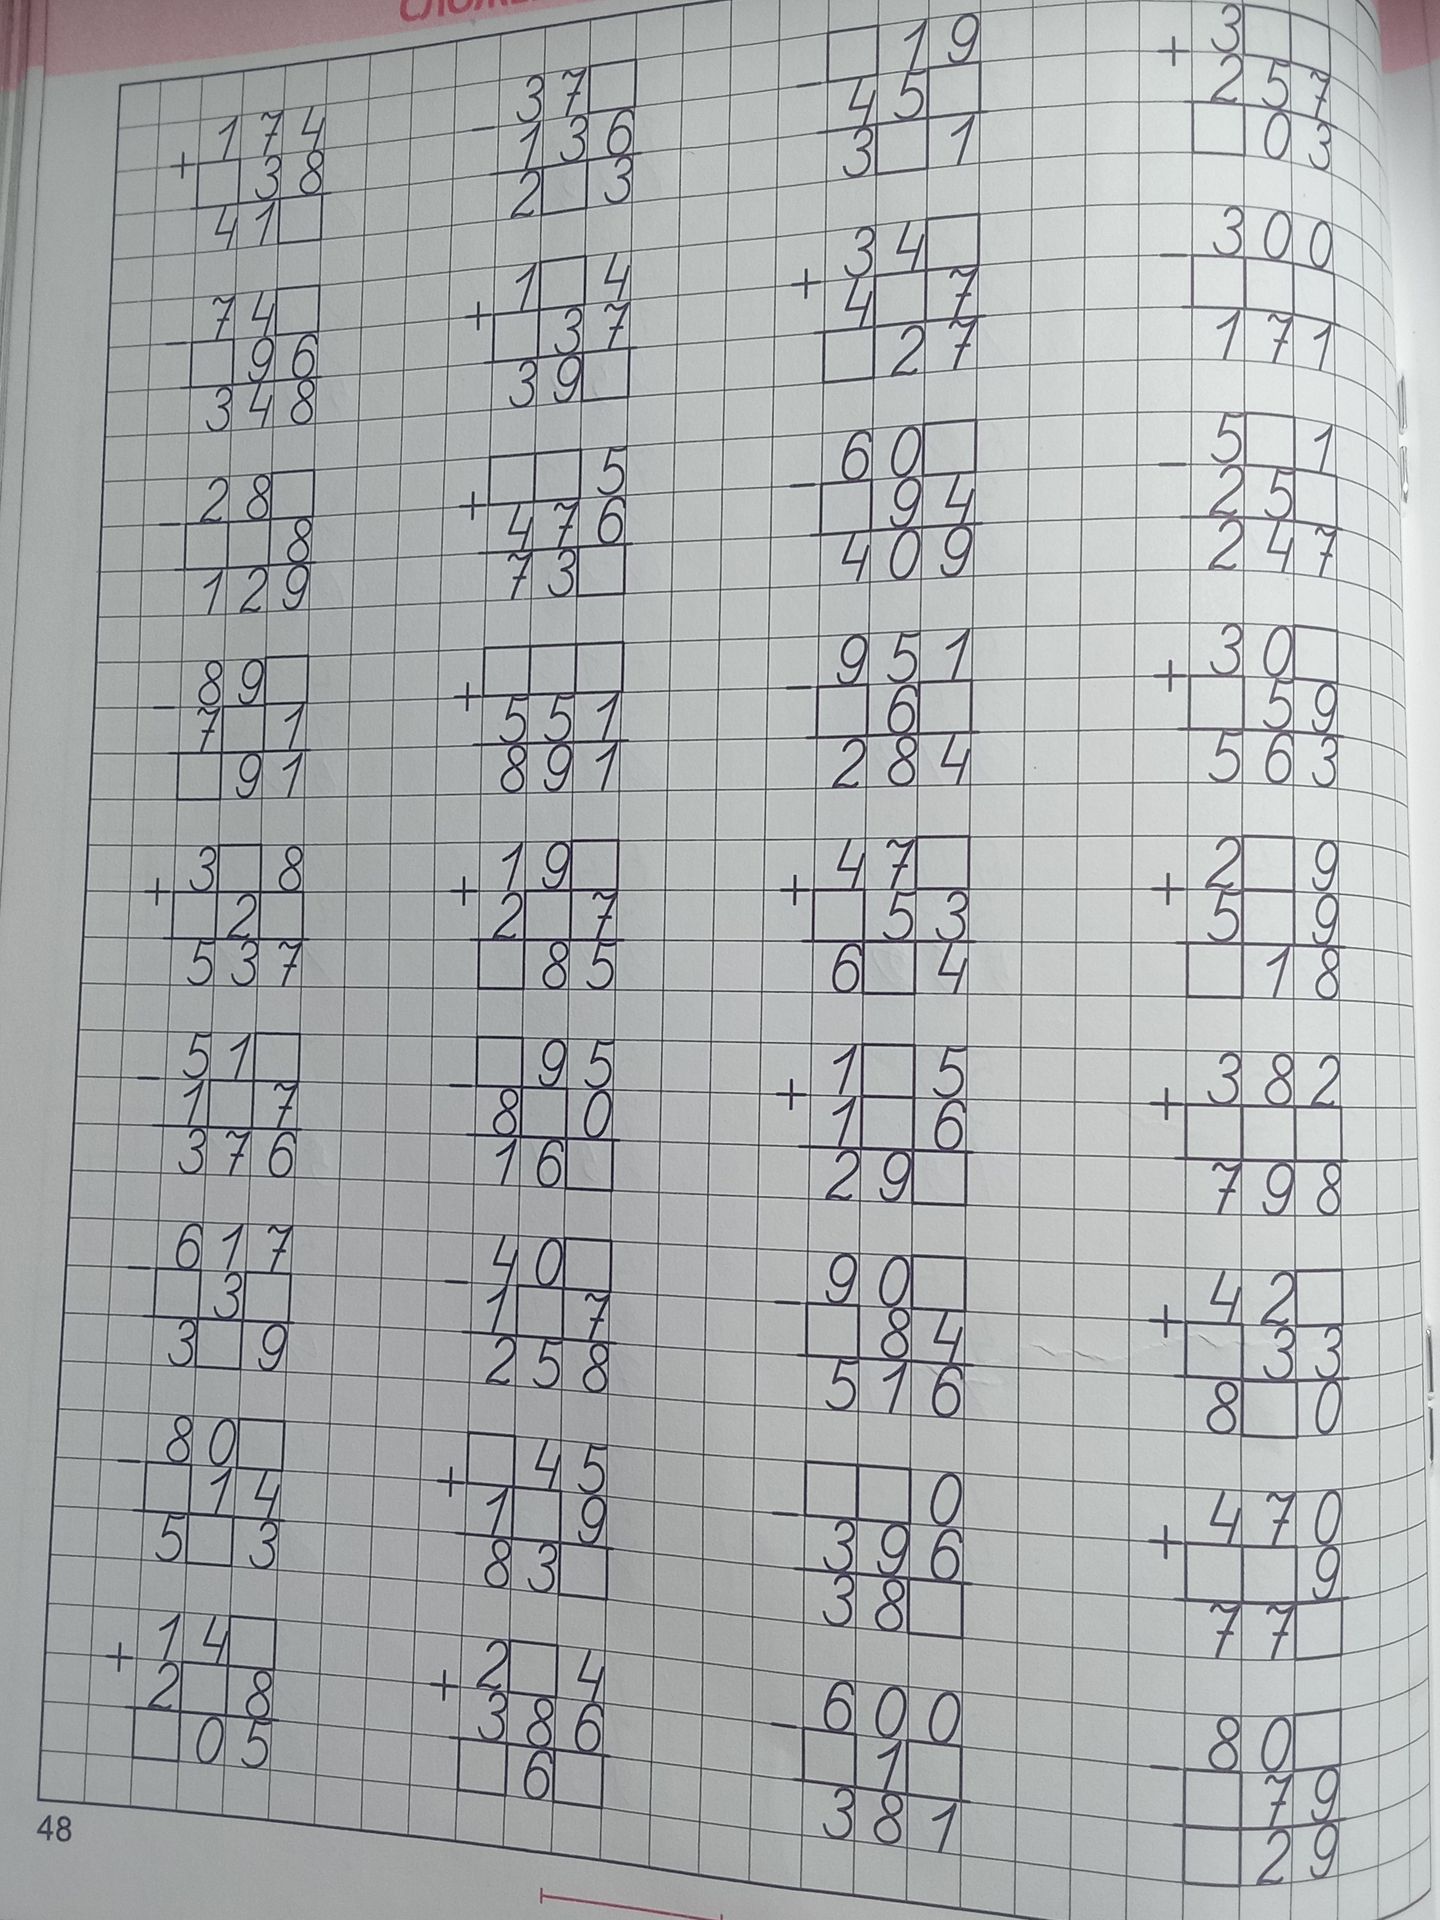 + 174
□38
41□
- 37□
136
2□3
- □19
45□
3□1
+ 3□□
257
□03
- 74□
□96
348
+ 1□4
□37
39□
+ 34□
4□7
□27
- 300
□□□
171
- 28□
□□8
129
+ □□5
476
73□
- 60□
□94
409
- 5□1
25□
247
- 89□
7□1
□91
+ □□□
551
891
- 951
□6□
284
+ 30□
□59
563
+ 3□8
□2□
537
+ 19□
2□7
□85
+ 47□
□53
6□4
+ 2□9
5□9
□18
- 51□
1□7
376
- □95
8□0
16□
+ 1□5
1□6
29□
+ 382
□□□
798
- 617
□3□
3□9
- 40□
1□7
258
- 90□
□84
516
+ 42□
□33
8□0
- 80□
□14
5□3
+ □45
1□9
83□
- □□0
396
38□
+ 470
□□9
77□
+ 14□
2□8
□05
+ 2□4
386
□6□
- 600
□1□
381
- 80□
□79
□29
48